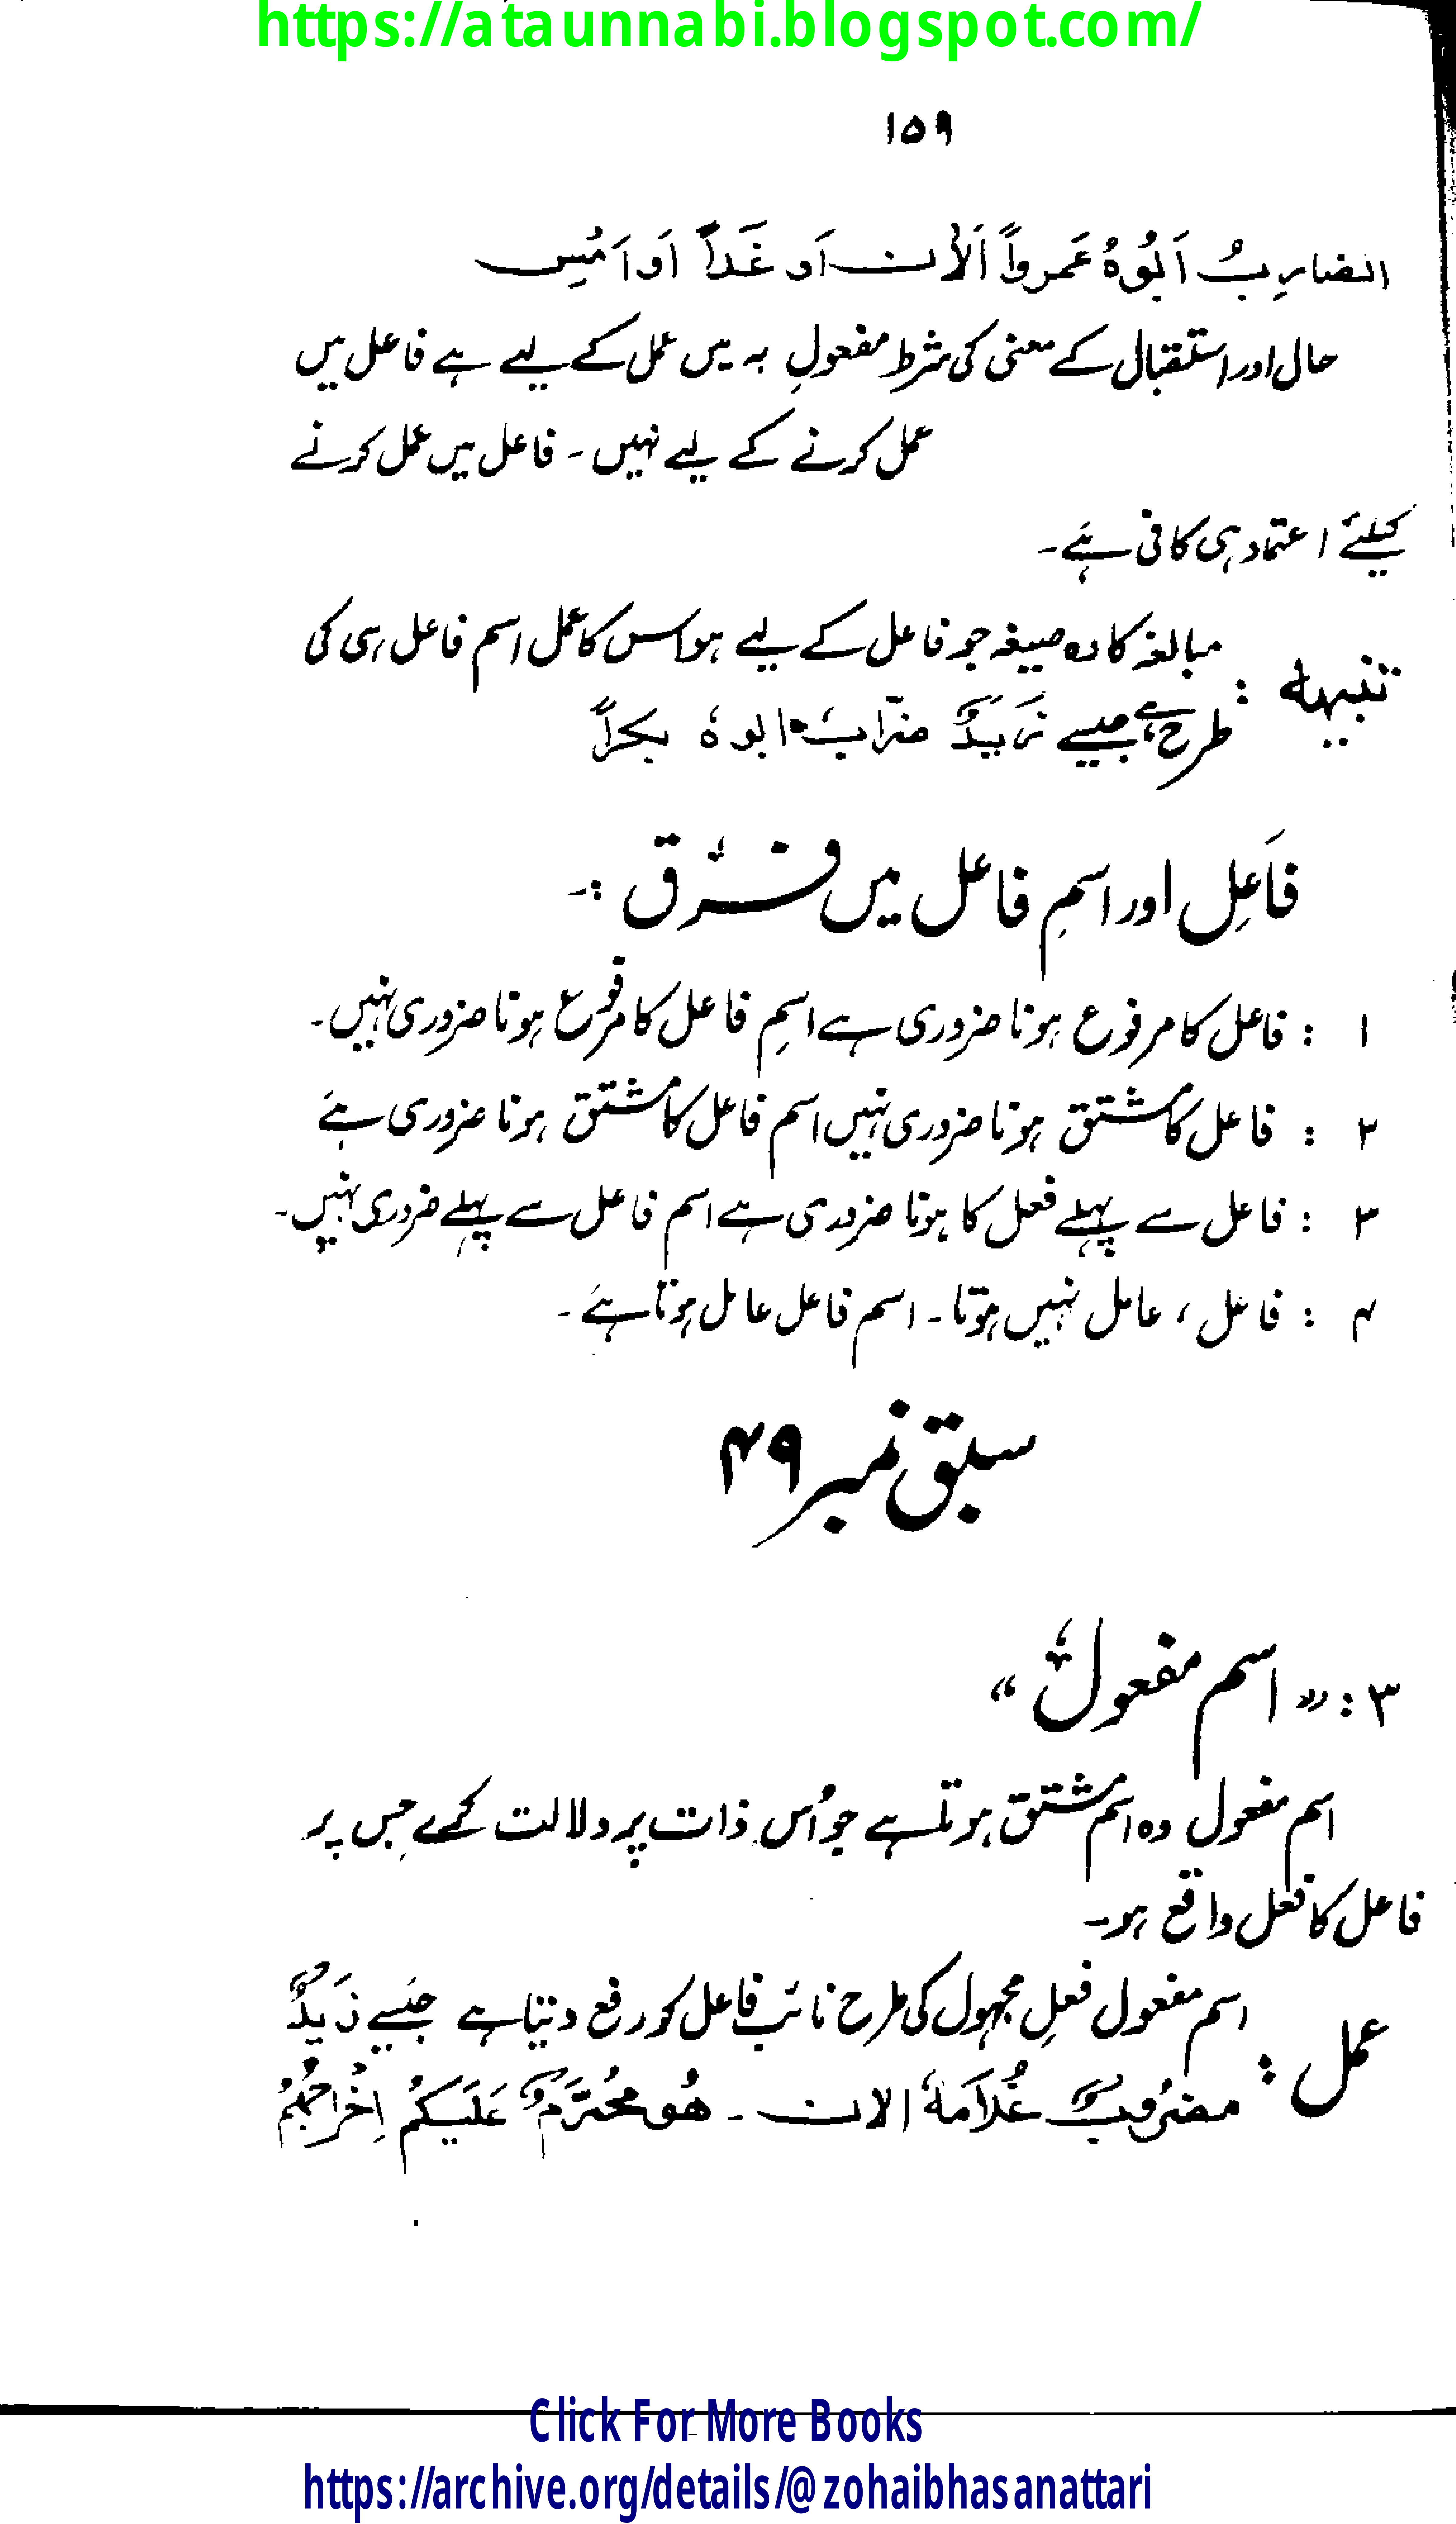 https://ataunnabi.blogspot.com/
۱۵۹
الضارِبُ اَبُوْہُ عَمرواً اَلْاٰن اَو غَداً اَو اَمْسِ
حال اور استقبال کے معنی کی شرط مفعولِ بہ میں عمل کے لیے ہے فاعل میں
عمل کرنے کے لیے نہیں ۔ فاعل میں عمل کرنے
کیلئے اعتماد ہی کافی ہے۔
تنبیہہ : مبالغہ کا وہ صیغہ جو فاعل کے لیے ہو اس کا عمل اسم فاعل ہی کی
طرح ہے جیسے زَیدٌ ضرّابٌ ابوہٗ بکراً
فاَعِل اور اسمِ فاعل میں فرق :۔
۱ : فاعل کا مرفوع ہونا ضروری ہے اسمِ فاعل کا مرفوع ہونا ضروری نہیں۔
۲ : فاعل کا مشتق ہونا ضروری نہیں اسم فاعل کا مشتق ہونا ضروری ہے
۳ : فاعل سے پہلے فعل کا ہونا ضروری ہے اسم فاعل سے پہلے ضروری نہیں۔
۴ : فاعل ، عامل نہیں ہوتا ۔ اسم فاعل عامل ہوتا ہے ۔
سبق نمبر ۴۹
۳ : " اسم مفعول "
اسم مفعول وہ اسم مشتق ہوتا ہے جو اُس ذات پر دلالت کرے جس پر
فاعل کا فعل واقع ہو۔
عمل : اسم مفعول فعلِ مجہول کی طرح نائب فاعل کو رفع دیتا ہے جیسے زَیدٌ
مضرُوبٌ غُلَامَہٗ الان ۔ ھُو مُحَرَّمٌ عَلَیکُم اِخْرَاجُہُمْ
Click For More Books
https://archive.org/details/@zohaibhasanattari